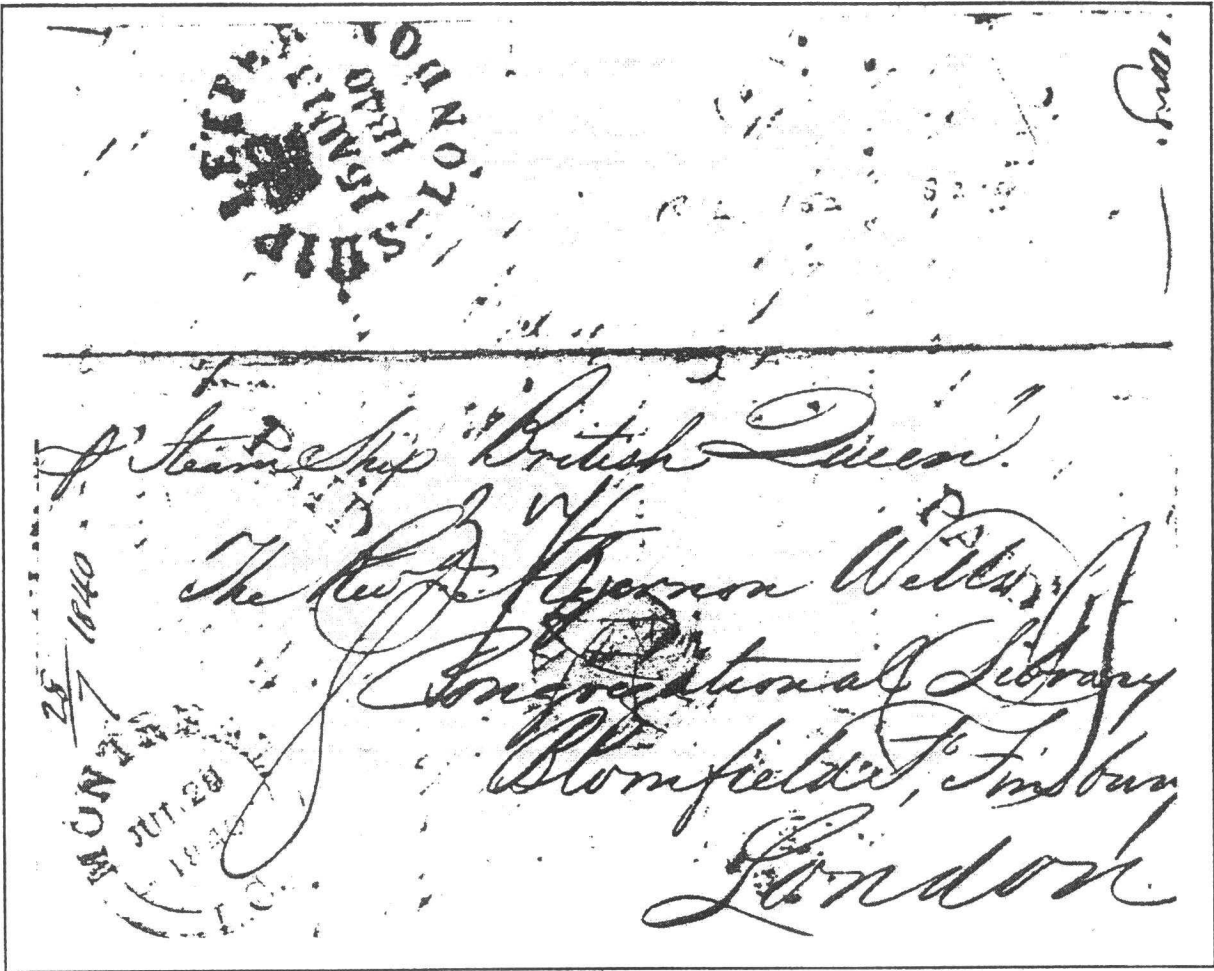 SHIP LETTER LONDON
15 AU 15
1840
pr Steam Ship British Queen.
PAID
PAID
The Revd Algernon Wells
Congregational Library
Blomfield St, Finsbury
London.
25/7 1840
MONTREAL L.C.
JUL 28
1840